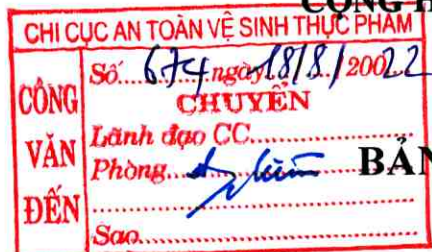 CỘNG H
CHI CỤC AN TOÀN VỆ SINH THỰC PHẨM
CÔNG VĂN ĐẾN
Số 674 ngày 18/8/20022
CHUYỂN
Lãnh đạo CC
Phòng
BẢN
Sao